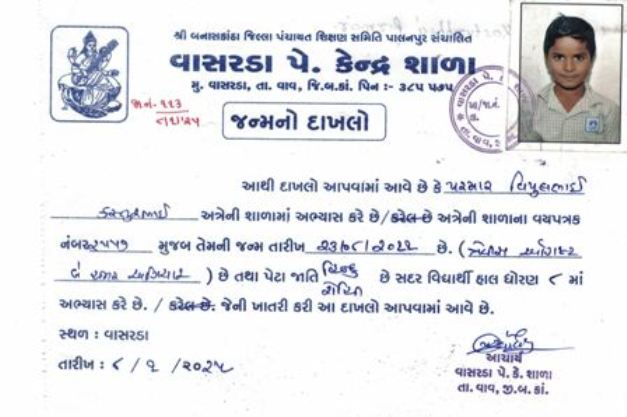 શ્રી બનાસકાંઠા જિલ્લા પંચાયત શિક્ષણ સમિતિ પાલનપુર સંચાલિત
વાસરડા પે. કેન્દ્ર શાળા
મુ. વાસરડા, તા. વાવ, જિ.બ.કાં. પિન :- ૩૮૫ ૫૭૫
જા.નં. ૧૧૩
૮/૧/૨૫
જન્મનો દાખલો
આથી દાખલો આપવામાં આવે છે કે પરમાર વિપુલભાઈ
અત્રેની શાળામાં અભ્યાસ કરે છે/ કરેલ છે અત્રેની શાળાના વયપત્રક
નંબર ૨૫૫૭ મુજબ તેમની જન્મ તારીખ ૨૩/૦૮/૨૦૧૨ છે. (ત્રેવીસ ઓગસ્ટ
બે હજાર ) છે તથા પેટા જાતિ હિન્દુ છે સદર વિદ્યાર્થી હાલ ધોરણ ૮ માં
અભ્યાસ કરે છે. / કરેલ છે. જેની ખાતરી કરી આ દાખલો આપવામાં આવે છે.
સ્થળ : વાસરડા
તારીખ : ૮ / ૧ / ૨૦૨૫
આચાર્ય
વાસરડા પે. કે. શાળા
તા. વાવ, જી.બ. કાં.